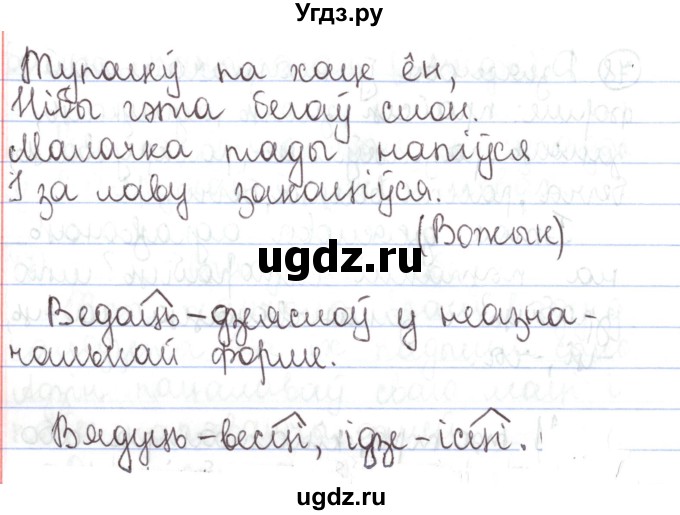 УгДЗ.ру
Тупацеў па хаце ён,
Нібы гэта бегаў слон.
Малачка тады напіўся
І за лаву закаціўся.
(Вожык)
ugdz.ru
Ведаць-дзеяслоў у неазна-
чальнай форме.
Вядуць-весці, ідзе-ісці.
ugdz.ru